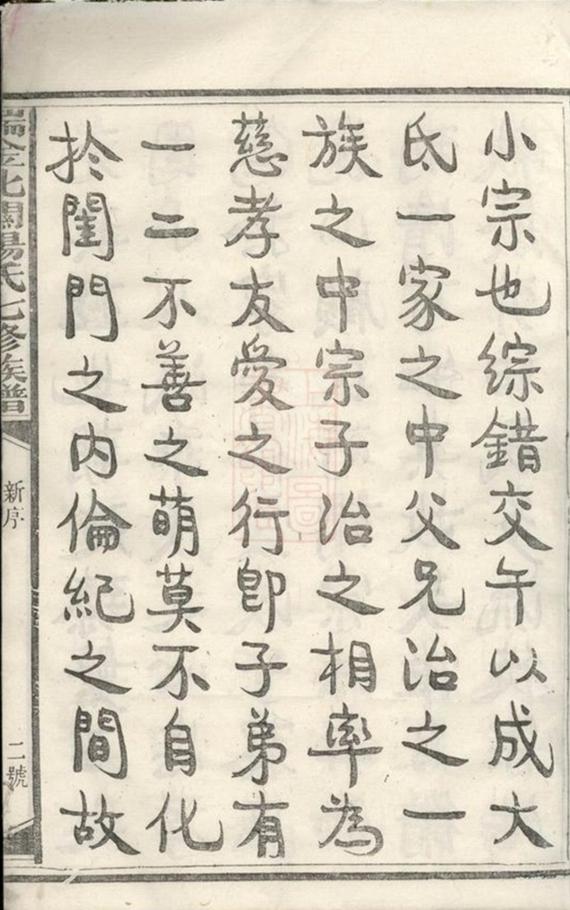 小宗也綜錯交午以成大
氏一家之中父兄治之一
族之中宗子治之相率為
慈孝友愛之行即子弟有
一二不善之萌莫不自化
於閨門之內倫紀之間故
瑞金北關楊氏七修族譜
新序
二號